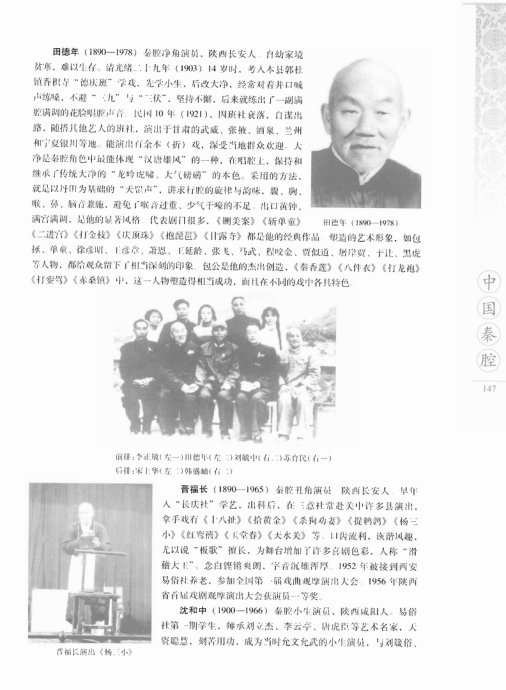 田德年（1890—1978）秦腔净角演员，陕西长安人。自幼家境
贫寒，难以生存。清光绪二十九年（1903）14岁时，考入本县郭杜
镇香积寺“德庆班”学戏，先学小生，后改大净，经常对着井口喊
声练嗓，不避“三九”与“三伏”，坚持不懈，后来就练出了一副满
腔满调的花脸唱腔声音。民国10年（1921），因班社衰落，自谋出
路，随搭其他艺人的班社，演出于甘肃的武威、张掖、酒泉、兰州
和宁夏银川等地。能演出百余本（折）戏，深受当地群众欢迎。大
净是秦腔角色中最能体现“汉唐雄风”的一种，在唱腔上，保持和
继承了传统大净的“龙吟虎啸，大气磅礴”的本色。采用的方法，
就是以丹田为基础的“天罡声”，讲求行腔的旋律与韵味，腹、胸、
喉、鼻、脑音兼施，避免了喉音过重、少气干嚎的不足。出口黄钟、
满宫满调，是他的显著风格。代表剧目很多，《铡美案》《斩单童》
田德年（1890—1978）
《二进宫》《打金枝》《庆顶珠》《抱琵琶》《甘露寺》都是他的经典作品。塑造的艺术形象，如包
拯、单童、徐彦昭、王彦章、萧恩、王延龄、张飞、马武、程咬金、贾似道、屠岸贾、于让、黑虎
等人物，都给观众留下了相当深刻的印象。包公是他的杰出创造，《秦香莲》《八件衣》《打龙袍》
《打銮驾》《赤桑镇》中，这一人物塑造得相当成功，而且在不同的戏中各具特色。
中
国
秦
腔
147
前排：李正敏（左一）田德年（左二）刘毓中（右二）苏育民（右一）
后排：宋上华（左二）韩盛岫（右二）
晋福长（1890—1965）秦腔丑角演员。陕西长安人。早年
入“长庆社”学艺，出科后，在三意社常赴关中许多县演出，
拿手戏有《十八扯》《拾黄金》《杀狗劝妻》《捉鹌鹑》《杨三
小》《红鸾禧》《玉堂春》《天水关》等。口齿流利，诙谐风趣，
尤以说“板歌”擅长，为舞台增加了许多喜剧色彩，人称“滑
稽大王”。念白铿锵爽朗，字音沉雄浑厚。1952年被接到西安
易俗社养老，参加全国第一届戏曲观摩演出大会。1956年陕西
省首届戏剧观摩演出大会获演员一等奖。
晋福长演出《杨三小》
沈和中（1900—1966）秦腔小生演员，陕西咸阳人。易俗
社第一期学生，师承刘立杰、李云亭、唐虎臣等艺术名家，天
资聪慧，刻苦用功，成为当时允文允武的小生演员，与刘箴俗、